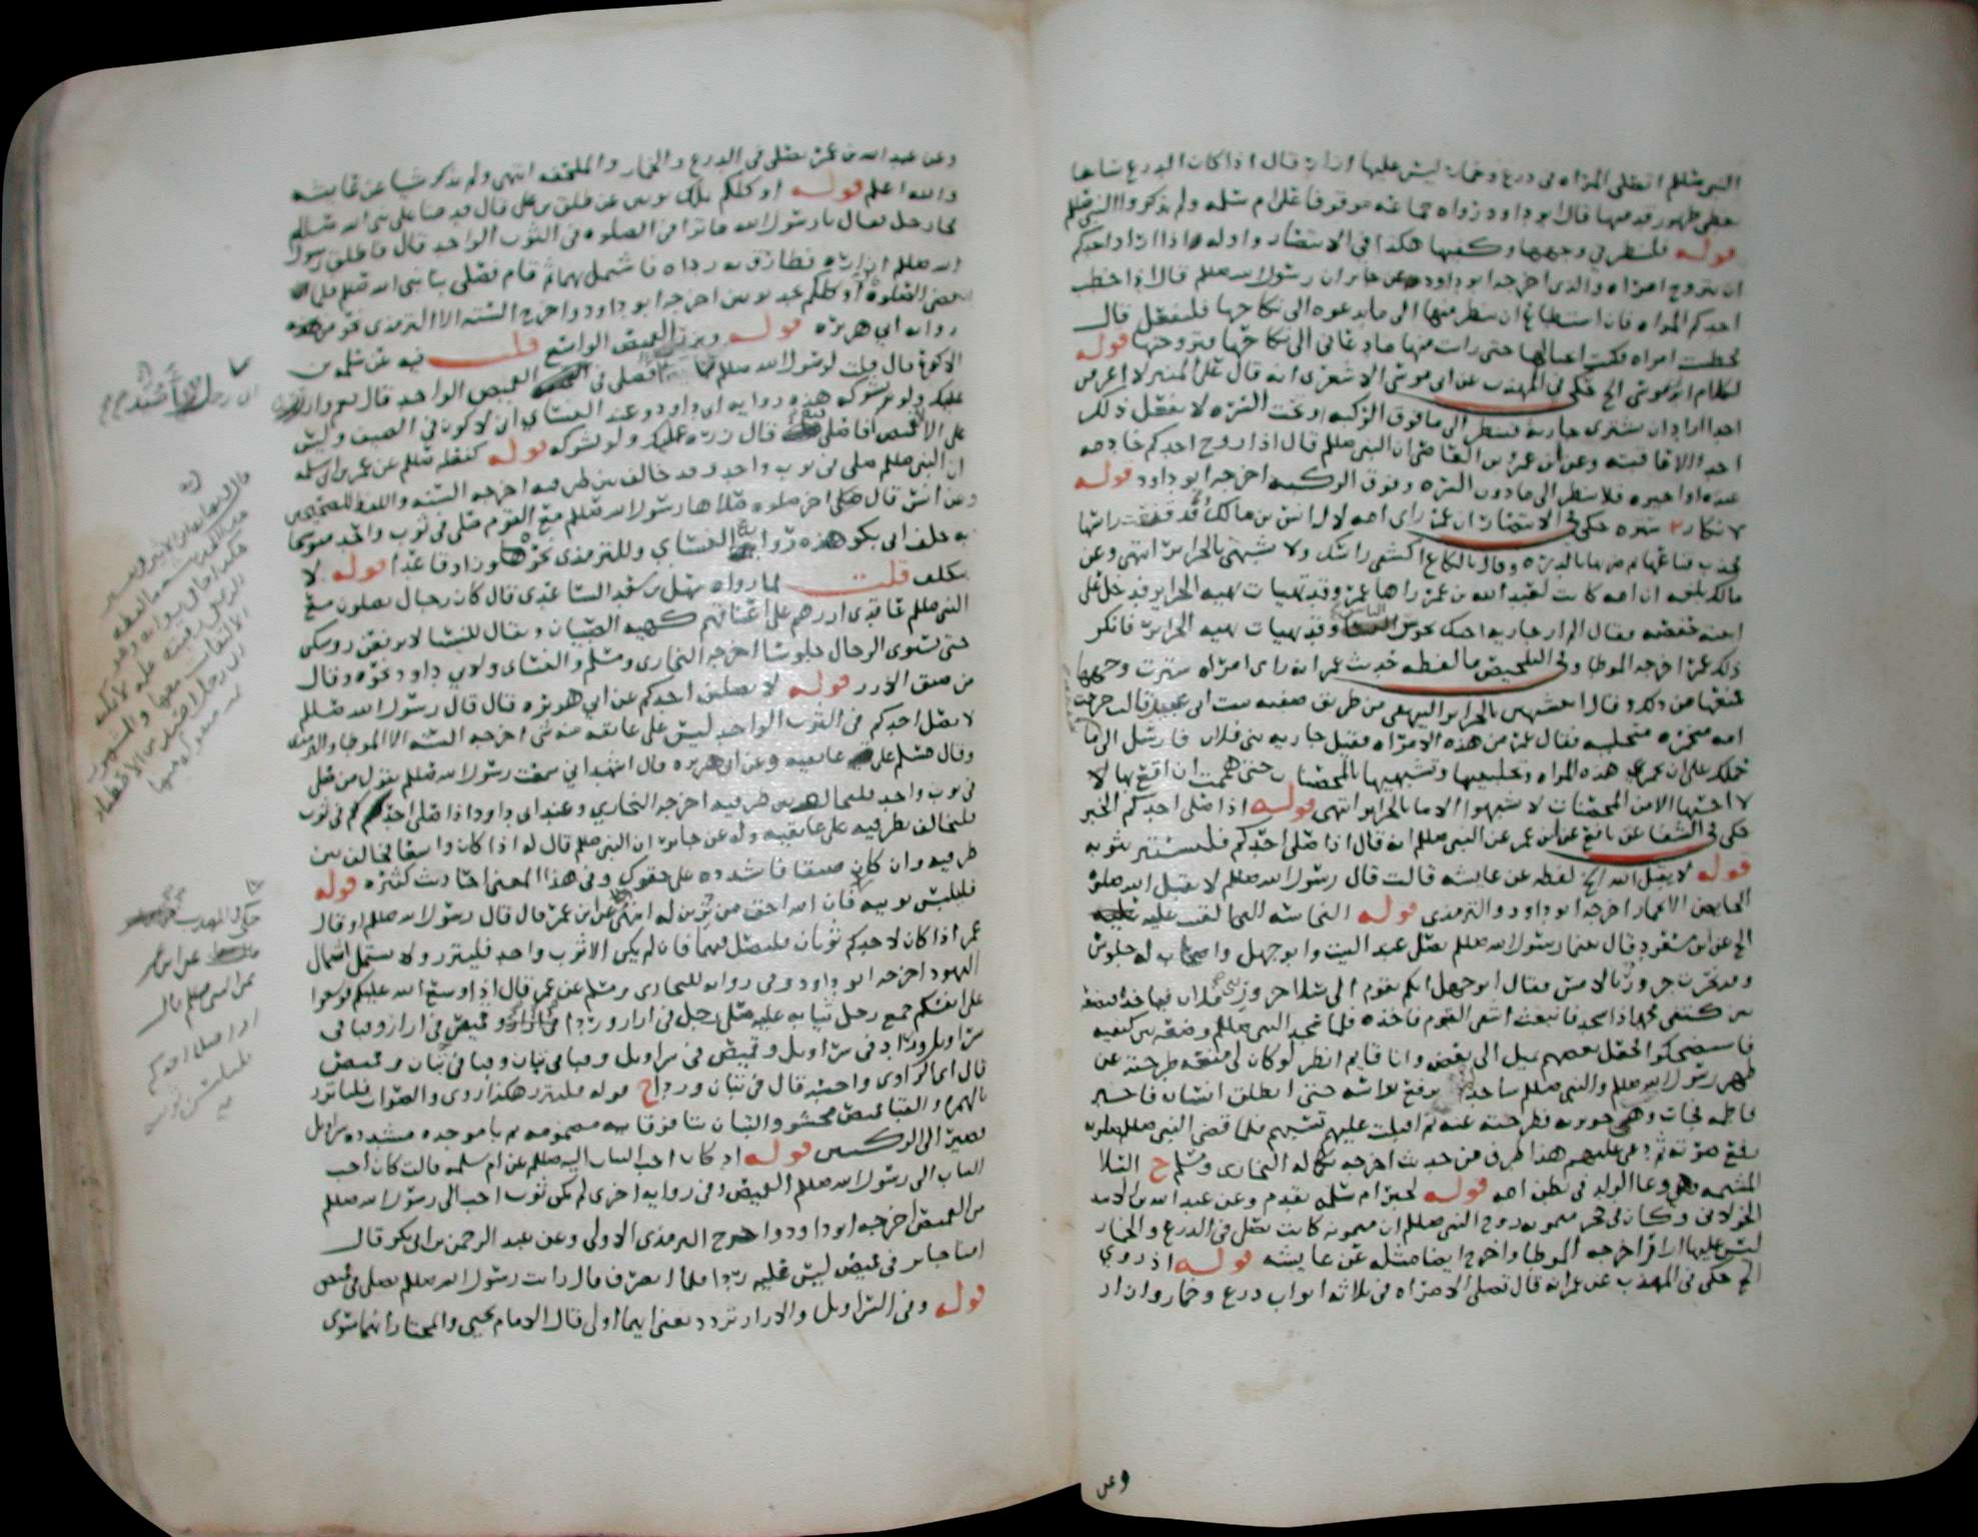 النبي صللم اتصلي المراه في درع وخمار ليس عليها ازار قال اذا كان الدرع سابغا
يغطي ظهور قدميها قال ابو داود رواه جماعه موقوفا على ام سلمه ولم يذكروا النبي صللم
قوله فلينظر في وجهها وكفيها هكذا في الانتصار واوله اذا اراد احدكم
ان يتزوج امراه والذي اخرجه ابو داود عن جابر ان رسول الله صللم قال اذا خطب
احدكم المراه فان استطاع ان ينظر منها الى ما يدعوه الى نكاحها فليفعل قال
فخطبت امراه فكنت اتخبا لها حتى رايت منها ما دعاني الى نكاحها وتزوجتها قوله
لكلام ابي موسى الخ حكى في المهذب عن ابي موسى الاشعري انه قال على المنبر لا اعرفن
احدا اراد ان يشتري جاريه فينظر الى ما فوق الركبه او تحت السره لا يفعل ذلك
احد الا عاقبته وعن ابن عمرو بن العاص ان النبي صللم قال اذا زوج احدكم خادمه
عبده او اجيره فلا ينظر الى ما دون السره وفوق الركبه اخرجه ابو داود قوله
لانكار عمر حكى في الانتصار ان عمر راى امه لال انس بن مالك قد قنعت راسها
فجذب قناعها وضربها بالدره وقال يالكاع اكشفي راسك ولا تشبهي بالحراير انتهى وعن
مالك بلغه ان امه كانت لعبد الله بن عمر راها عمر وقد تهيات بهيه الحراير فدخل على
ابنته حفصه فقال الم ار جاريه اخيك تجوس الناس وقد تهيات بهيه الحراير فانكر
ذلك عمر اخرجه الموطا وفي التلخيص ما لفظه حديث عمر انه راى امراه سترت وجهها
فمنعها من ذلك وقال اتتشبهين بالحراير البيهقي من طريق صفيه بنت ابي عبيد قالت خرجت
امه مختمره متجلببه فقال عمر من هذه الامراه فقيل جاريه بني فلان فارسل الى
حملك على ان تخمري هذه المراه وتجلببيها وتشبهيها بالمحصنات حتى هممت ان اقع بها لا
لا احسبها الا من المحصنات لا تشبهوا الاما بالحراير انتهى قوله اذا صلى احدكم الخبر
حكى في الشفا عن نافع عن ابن عمر عن النبي صللم انه قال اذا صلى احدكم فليستتر بثوبه
قوله لا يقبل الله الخ لفظه عن عايشه قالت قال رسول الله صللم لا يقبل الله صلوة
الحايض الا بخمار اخرجه ابو داود والترمذي قوله النجاسه لما القيت عليه
الخ عن ابن مسعود قال بينما رسول الله صللم يصلي عند البيت وابو جهل واصحاب له جلوس
وقد نحرت جزور بالامس فقال ابو جهل ايكم يقوم الى سلا جزور بني فلان فياخذه فيضعه
بين كتفي محمد اذا سجد فانبعث اشقى القوم فاخذه فلما سجد النبي صللم وضعه بين كتفيه
فاستضحكوا وجعل بعضهم يميل الى بعض وانا قايم انظر لو كان لي منعه طرحته عن
ظهر رسول الله صللم والنبي صللم ساجد ما يرفع راسه حتى انطلق انسان فاخبر
فاطمه فجات وهي جويريه فطرحته عنه ثم اقبلت عليهم تشتمهم فلما قضى النبي صللم صلوته
رفع صوته ثم دعى عليهم هذا طرف من حديث اخرجه بكماله البخاري ومسلم ح السلا
المشيمه وهي وعا الولد في بطن امه قوله لخبر ام سلمه تقدم وعن عبد الله بن الاسود
الخولاني وكان في حجر ميمونه زوج النبي صللم ان ميمونه كانت تصلي في الدرع والخمار
ليس عليها ازار اخرجه الموطا واخرج ايضا مثله عن عايشه قوله اذ روي
الخ حكى في المهذب عن عمر انه قال تصلي الامراه في ثلاثه اثواب درع وخمار وازار
وعن
وعن عبد الله بن عمر تصلي في الدرع والخمار والملحفه انتهى ولم يذكر شيا عن عايشه
والله اعلم قوله او كلكم يملك ثوبين عن طلق بن علي قال قدمنا على نبي الله صللم
فجا رجل فقال يا رسول الله ما ترا في الصلوه في الثوب الواحد قال فاطلق رسول
الله صللم ازاره فطارق به رداه فاشتمل بهما ثم قام فصلى بنا نبي الله صللم فلما
قضى الصلوة او كلكم يجد ثوبين اخرجه ابو داود واخرج السته الا الترمذي نحو من هذه
روايه ابي هريره قوله ويزر القميص الواسع قلت فيه عن سلمه بن
الاكوع قال قلت لرسول الله صللم افاصلي في القميص الواحد قال نعم وازرره
عليك ولو بشوكه هذه روايه ابي داود وعند النسائي اني لاكون في الصيف وليس
علي الا القميص افاصلي فيه قال زره عليك ولو بشوكه قوله كفعله صللم عن عمر بن ابي سلمه
ان النبي صللم صلى في ثوب واحد وقد خالف بين طرفيه اخرجه السته واللفظ للصحيحين
وعن انس قال صلى اخر صلوه صلاها رسول الله صللم مع القوم صلى في ثوب واحد متوشحا
به خلف ابي بكر هذه روايه النسائي وللترمذي نحوها وزاد قاعدا قوله لا
يكلف قلت لما رواه سهل بن سعد الساعدي قال كان رجال يصلون مع
النبي صللم عاقدي ازرهم على اعناقهم كهيه الصبيان ويقال للنسا لا ترفعن روسكن
حتى يستوي الرجال جلوسا اخرجه البخاري ومسلم والنسائي ولابي داود نحوه وقال
من ضيق الازر قوله لا يصلين احدكم عن ابي هريره قال قال رسول الله صللم
لا يصل احدكم في الثوب الواحد ليس على عاتقه منه شي اخرجه السته الا الموطا والترمذي
وقال مسلم على عاتقيه وعن ابي هريره قال اشهد اني سمعت رسول الله صللم يقول من صلى
في ثوب واحد فليخالف بين طرفيه اخرجه البخاري وعند ابي داود اذا صلى احدكم في ثوب
فليخالف بطرفيه على عاتقيه وله عن جابر ان النبي صللم قال له اذا كان واسعا فخالف بين
طرفيه وان كان ضيقا فاشدده على حقوك وفي هذا المعنى احاديث كثيره قوله
فليلبس ثوبيه فان الله احق من تزين له انتهى عن ابن عمر قال قال رسول الله صللم او قال
عمر اذا كان لاحدكم ثوبان فليصل فيهما فان لم يكن الا ثوب واحد فليتزر ولا يشتمل اشتمال
اليهود اخرجه ابو داود وفي روايه للبخاري ومسلم عن عمر قال اذا وسع الله عليكم فوسعوا
على انفسكم جمع رجل ثيابه عليه صلى رجل في ازار وردا في ازار وقميص في ازار وقبا في
سراويل وردا في سراويل وقميص في سراويل وقبا في تبان وقبا في تبان وقميص
قال اي الراوي واحسبه قال في تبان وردا ح قوله فليتزر هكذا روي والصواب فلياتزر
بالهمزه والقبا قميص محشو والتبان بتا فوقانيه مضمومه ثم با موحده مشدده سراويل
قصيره الى الركبتين قوله اذ كان احب الثياب اليه صللم عن ام سلمه قالت كان احب
الثياب الى رسول الله صللم القميص وفي روايه اخرى لم يكن ثوب احب الى رسول الله صللم
من القميص اخرجه ابو داود واخرج الترمذي الاولى وعن عبد الرحمن بن ابي بكر قال
امنا جابر في قميص ليس عليه ردا فلما انصرف قال رايت رسول الله صللم يصلي في قميص
قوله وفي السراويل والازار تردد يعني ايهما اولى قال الامام يحيى والمختار انهما سوى
اني رجل اصيد
حكى في المهذب
عن ابن عمر
عن النبي صللم قال
اذا صلى احدكم
فليلبس ثوبيه